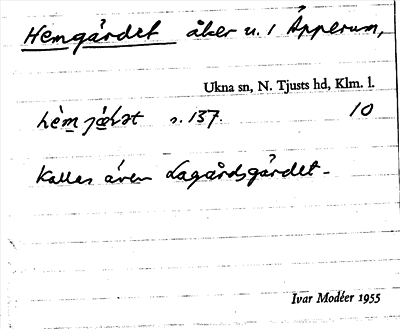 Hemgärdet åker u. 1 Äpperum,
Ukna sn, N. Tjusts hd, Klm. l.
s. 137. 10
Kallas även Lagårdsgärdet.
Ivar Modéer 1955